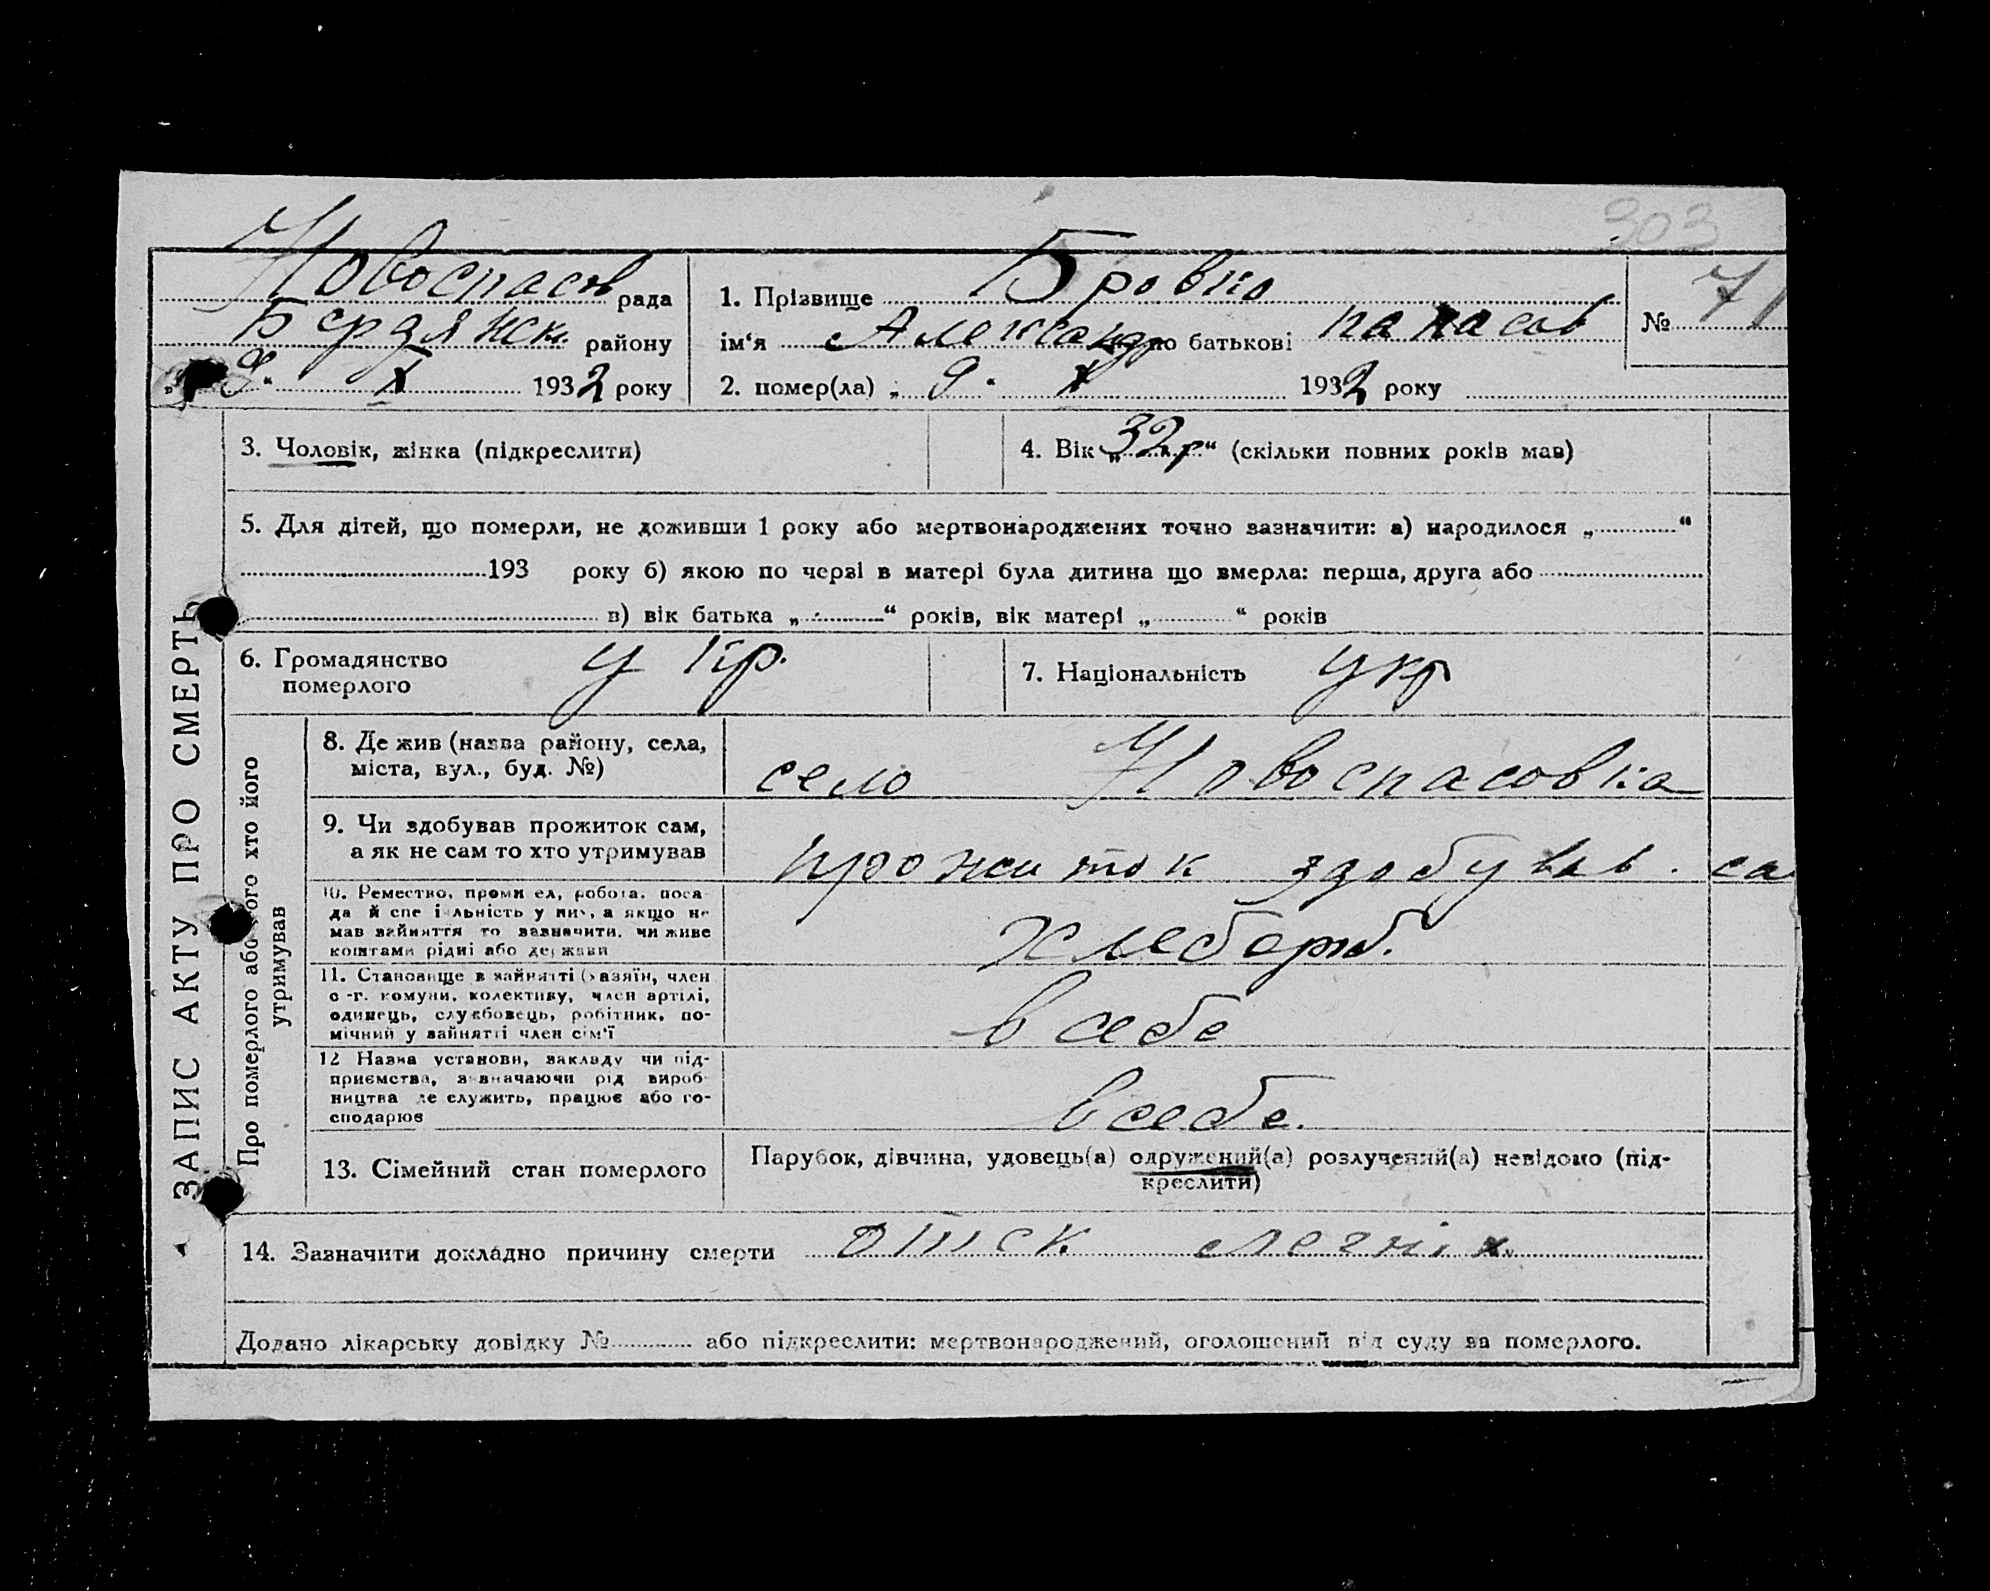 303
Новоспасов рада
Бердянск. району
„9“ X 1932 року
1. Прізвище Бровко
ім‘я Александ по батькові панасов
2. помер(ла) „9“ X 1932 року
№ 71
ЗАПИС АКТУ ПРО СМЕРТЬ
3. Чоловік, жінка (підкреслити)
4. Вік „32 р“ (скільки повних років мав)
5. Для дітей, що померли, не доживши 1 року або мертвонароджених точно зазначити: а) народилося „ “
193 року б) якою по черзі в матері була дитина що вмерла: перша, друга або
в) вік батька „ “ років, вік матері „ “ років
6. Громадянство
померлого
укр.
7. Національність укр
Про померлого або того хто його
утримував
8. Де жив (назва району, села,
міста, вул., буд. №)
село Новоспасовка
9. Чи здобував прожиток сам,
а як не сам то хто утримував
прожиток здобував. са
10. Ремество, промисел, робота, поса-
да й спеціяльність у них, а якщо не
мав зайняття то зазначити, чи живе
коштами рідні або держави
хлебороб.
11. Становище в зайнятті (хазяїн, член
с.-г. комуни, колективу, член артілі,
одинець, службовець, робітник, по-
мічний у зайнятті член сім‘ї
в себе
12 Назва установи, закладу чи під-
приємства, зазначаючи рід вироб-
ництва де служить, працює або го-
сподарює
в себе.
13. Сімейний стан померлого
Парубок, дівчина, удовець(а) одружений(а) розлучений(а) невідомо (під-
креслити)
14. Зазначити докладно причину смерти отек легких
Додано лікарську довідку № або підкреслити: мертвонароджений, оголошений від суду за померлого.